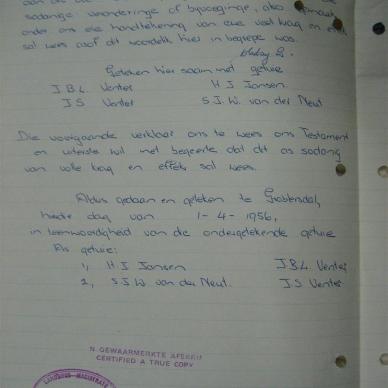 sodanige veranderinge of byvoeginge, also gemaak
onder ons eie handtekening van ewe veel krag en effek
sal wees asof dit woordelik hier in begrepe was.
Geteken hier saam met getuie
J.B.L. Venter H J Jansen.
J S Venter S.J.W. van der Neut
Die voorgaande verklaar ons te wees ons Testament
en uiterste wil met begeerte dat dit as sodanig
van volle krag en effek sal wees.
Aldus gedaan en geteken te Groblersdal,
hierdie dag van 1-4-1956,
in teenwoordigheid van die ondergetekende getuie
As getuie:
1, H J Jansen J.B.L. Venter
2, S.J.W. van der Neut. J S Venter
'N GEWAARMERKTE AFSKRIF
CERTIFIED A TRUE COPY
LANDDROS - MAGISTRATE